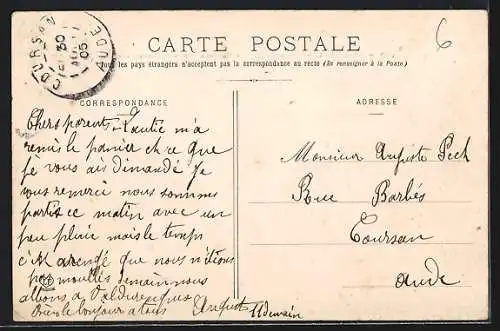 COURSAN
AUDE
30
05
6
CARTE POSTALE
Tous les pays étrangers n'acceptent pas la correspondance au recto (Se renseigner à la Poste)
CORRESPONDANCE
Chers parents Lautié m'a
remis le panier et ce que
je vous ais dimandé Je
vous remercie nous sommes
partis ce matin avec un
peu pluie mais le temps
c'est arengé que nous n'étions
pas mouillés demain nous
allons a
le bonjour a tous Auguste
ADRESSE
Monsieur Auguste Pech
Rue Barbés
Coursan
Aude